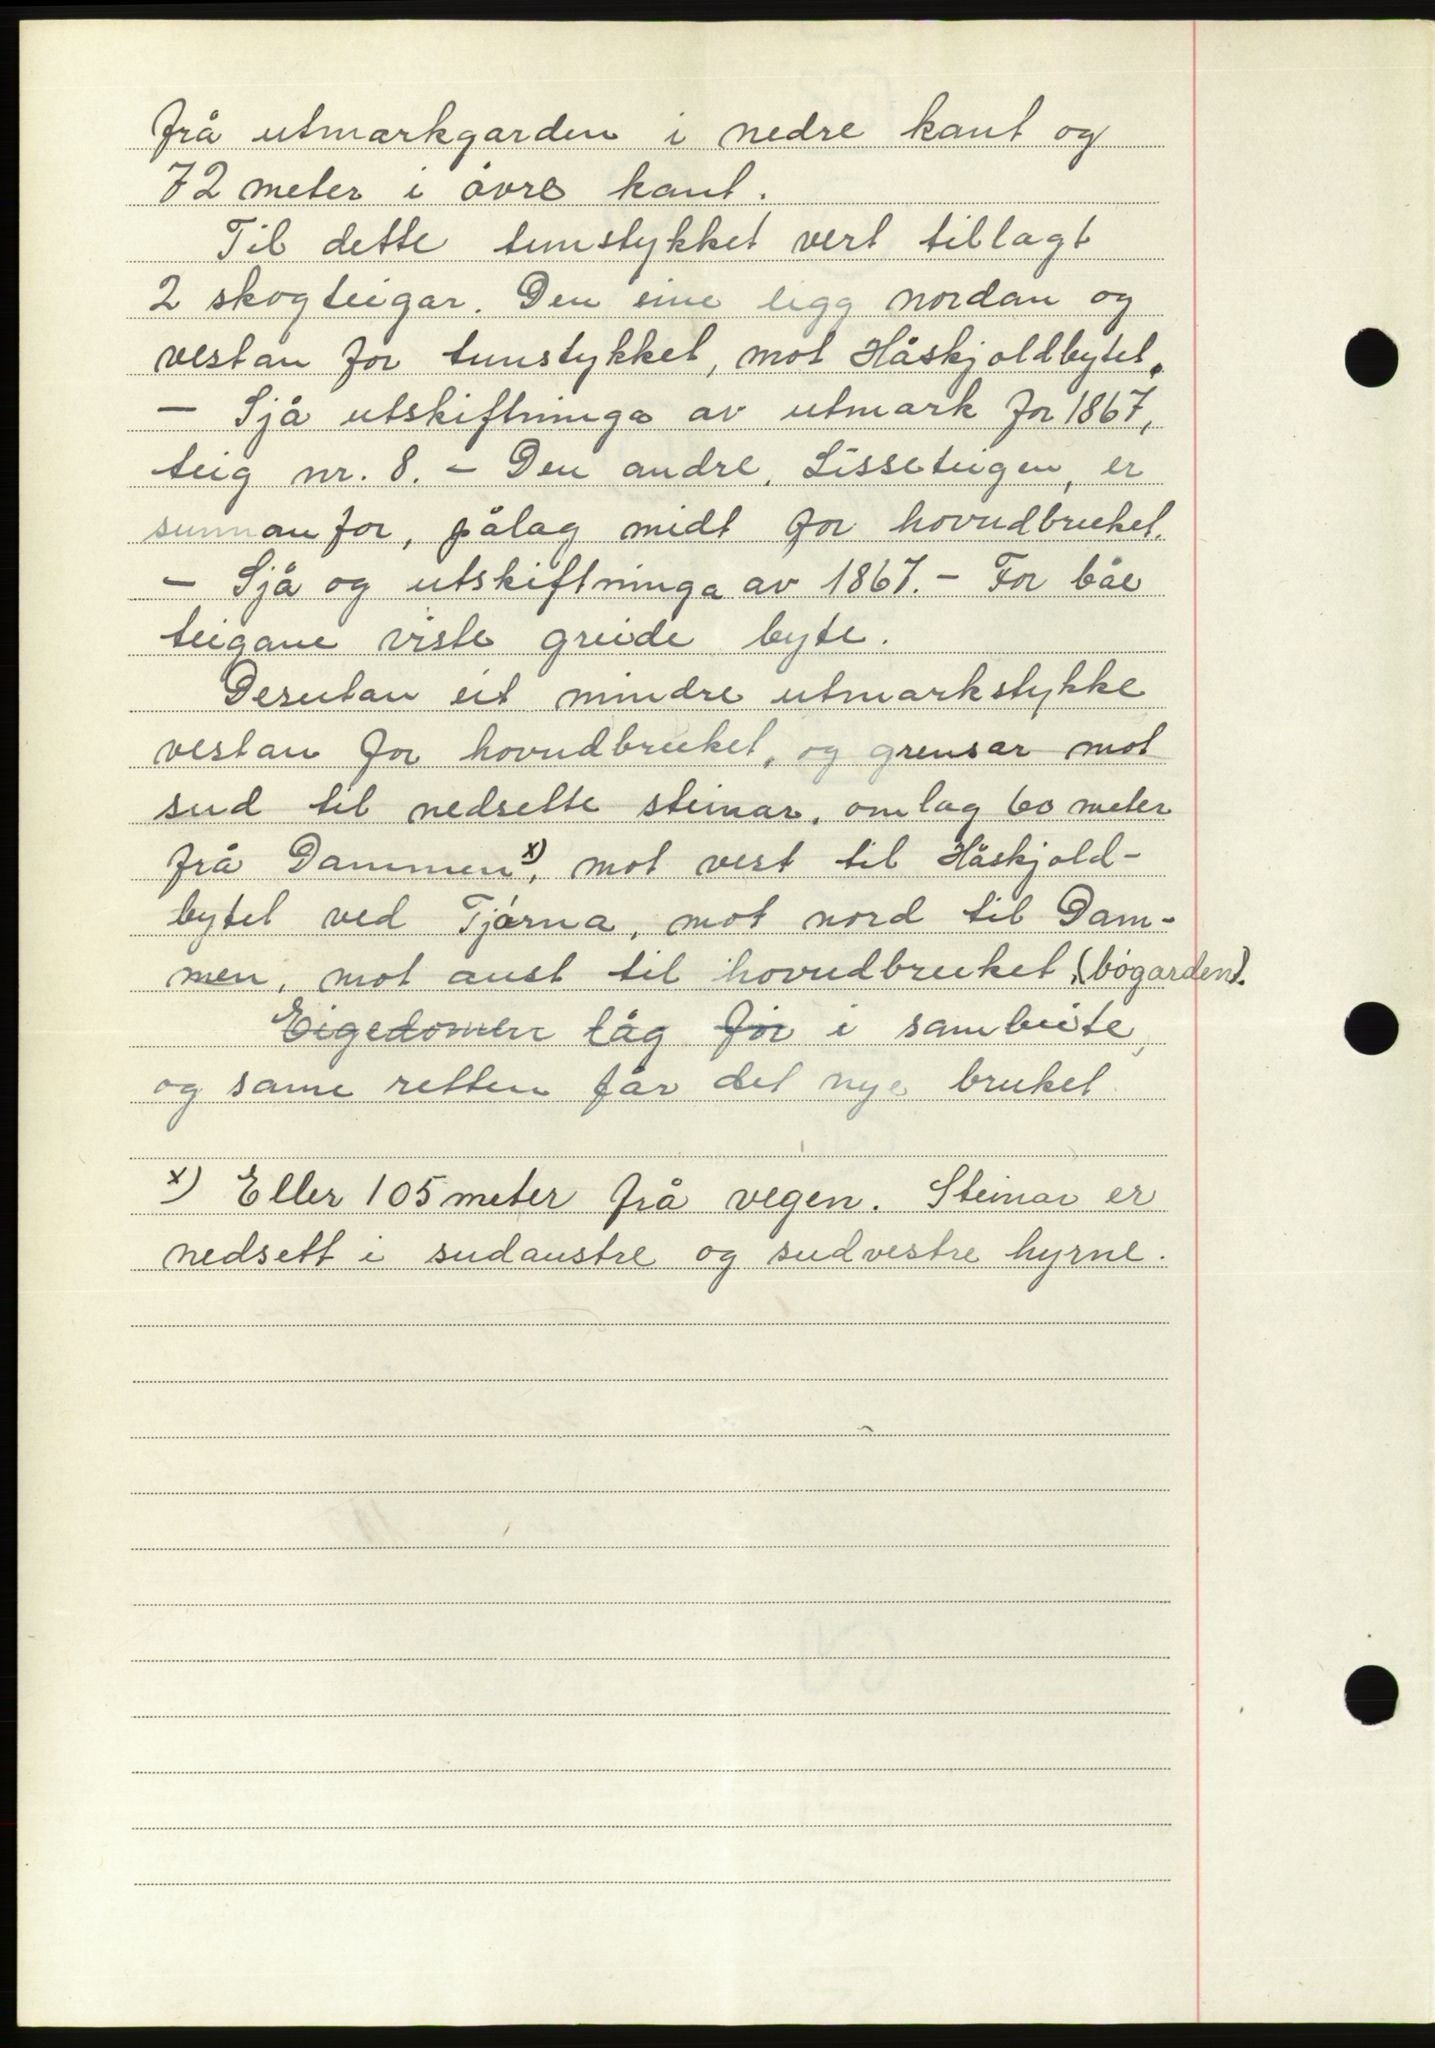 frå utmarkgarden i nedre kant og
72 meter i óvre kant.
Til dette tunstykket vert tillagt
2 skogteigar. Den eine ligg nordan og
vestan for tunstykket, mot Håskjoldbytet.
— Sjå utskiftninga av utmark for 1867,
teig nr. 8. — Den andre, Lisseteigen, er
sunnanfor, pålag midt for hovudbruket.
— Sjå og utskiftninga av 1867. — For båe
teigane viste greide byte.
Desutan eit mindre utmarkstykke
vestan for hovudbruket, og grensar mot
sud til nedsette steinar, omlag 60 meter
frå Dammen x), mot vest til Håskjold-
bytet ved Tjórna, mot nord til Dam-
men, mot aust til hovudbruket (bógarden).
Eigedomen låg för i sambeite,
og same retten får det nye bruket
x) Eller 105 meter frå vegen. Steinar er
nedsett i sudaustre og sudvestre hyrne.